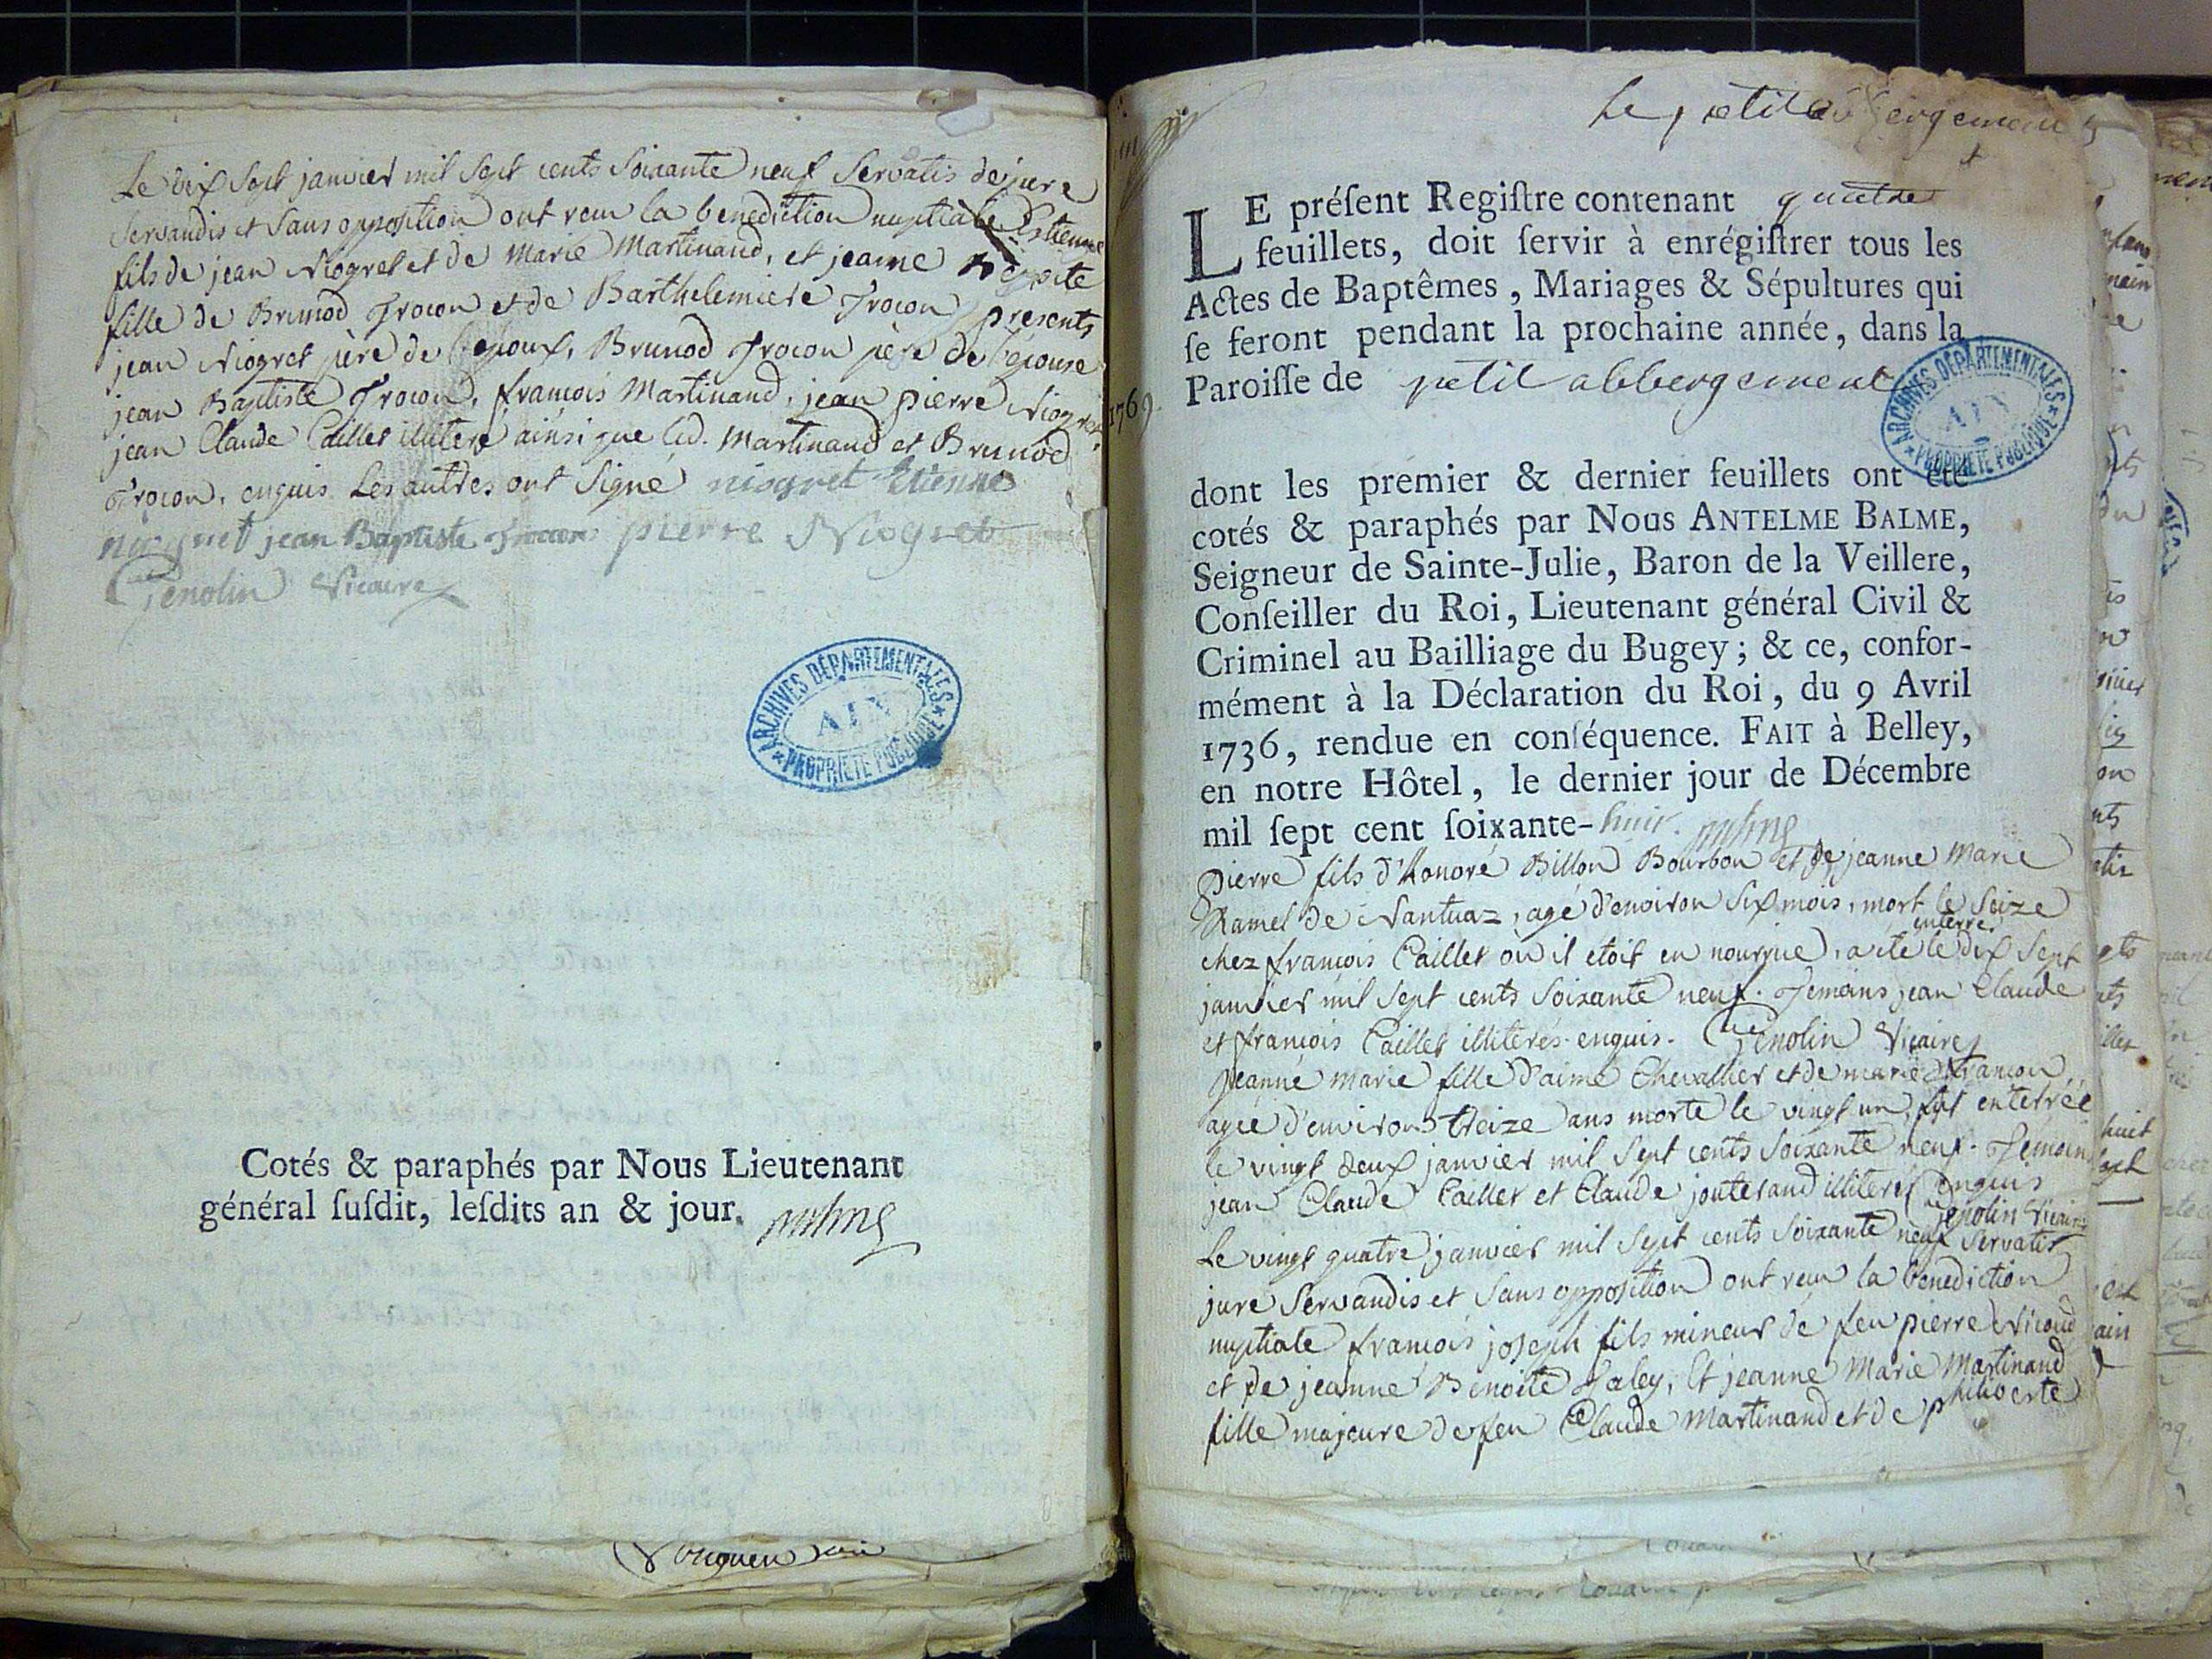 Le dix sept janvier mil sept cents soixante neuf servatis de jure
servandis et sans opposition ont recu la benediction nuptiale Estienne
fils de jean Niogret et de Marie Martinand, et jeanne
fille de Brunod Trocon et de Barthelemiere Trocon presents
jean Niogret père de l'epoux, Brunod Trocon père de l'epouse
jean Baptiste Trocon, francois Martinand, jean pierre Niogret
jean Claude Caillet illiteré ainsi que led. Martinand et Brunod
Trocon, enquis. Les autres ont signé niogret Etienne
niogret jean Baptiste Trocon pierre Niogret
Genolin Vicaire
ARCHIVES DÉPARTEMENTALES
AIN
PROPRIÉTÉ PUBLIQUE
Cotés & paraphés par Nous Lieutenant
général susdit, lesdits an & jour.
Le petit abbergement
1769
LE présent Registre contenant quatre
feuillets, doit servir à enrégistrer tous les
Actes de Baptêmes, Mariages & Sépultures qui
se feront pendant la prochaine année, dans la
Paroisse de petit abbergement
ARCHIVES DÉPARTEMENTALES
AIN
PROPRIÉTÉ PUBLIQUE
dont les premier & dernier feuillets ont été
cotés & paraphés par Nous ANTELME BALME,
Seigneur de Sainte-Julie, Baron de la Veillere,
Conseiller du Roi, Lieutenant général Civil &
Criminel au Bailliage du Bugey; & ce, confor-
mément à la Déclaration du Roi, du 9 Avril
1736, rendue en conséquence. FAIT à Belley,
en notre Hôtel, le dernier jour de Décembre
mil sept cent soixante-huit.
pierre fils d'honoré Billon Bourbon et de jeanne Marie
Ramel de Nantuaz, agé d'environ six mois, mort le seize
chez francois Caillet où il etoit en nourrice, a été enterré le dix sept
janvier mil sept cents soixante neuf. Temoins jean Claude
et francois Caillet illiterés enquis. Genolin Vicaire
Jeanne marie fille d'aimé Chevallier et de marie francon
agée d'environ treize ans morte le vingt un, fut enterrée
le vingt deux janvier mil sept cents soixante neuf. Temoins
jean Claude Caillet et Claude jouterand illiterés enquis
Genolin Vicaire
Le vingt quatre janvier mil sept cents soixante neuf servatis
jure servandis et sans opposition ont recu la benediction
nuptiale francois joseph fils mineur de feu pierre Nicoud
et de jeanne Benoite Jaley, Et jeanne Marie Martinand
fille majeure de feu Claude Martinand et de philiberte